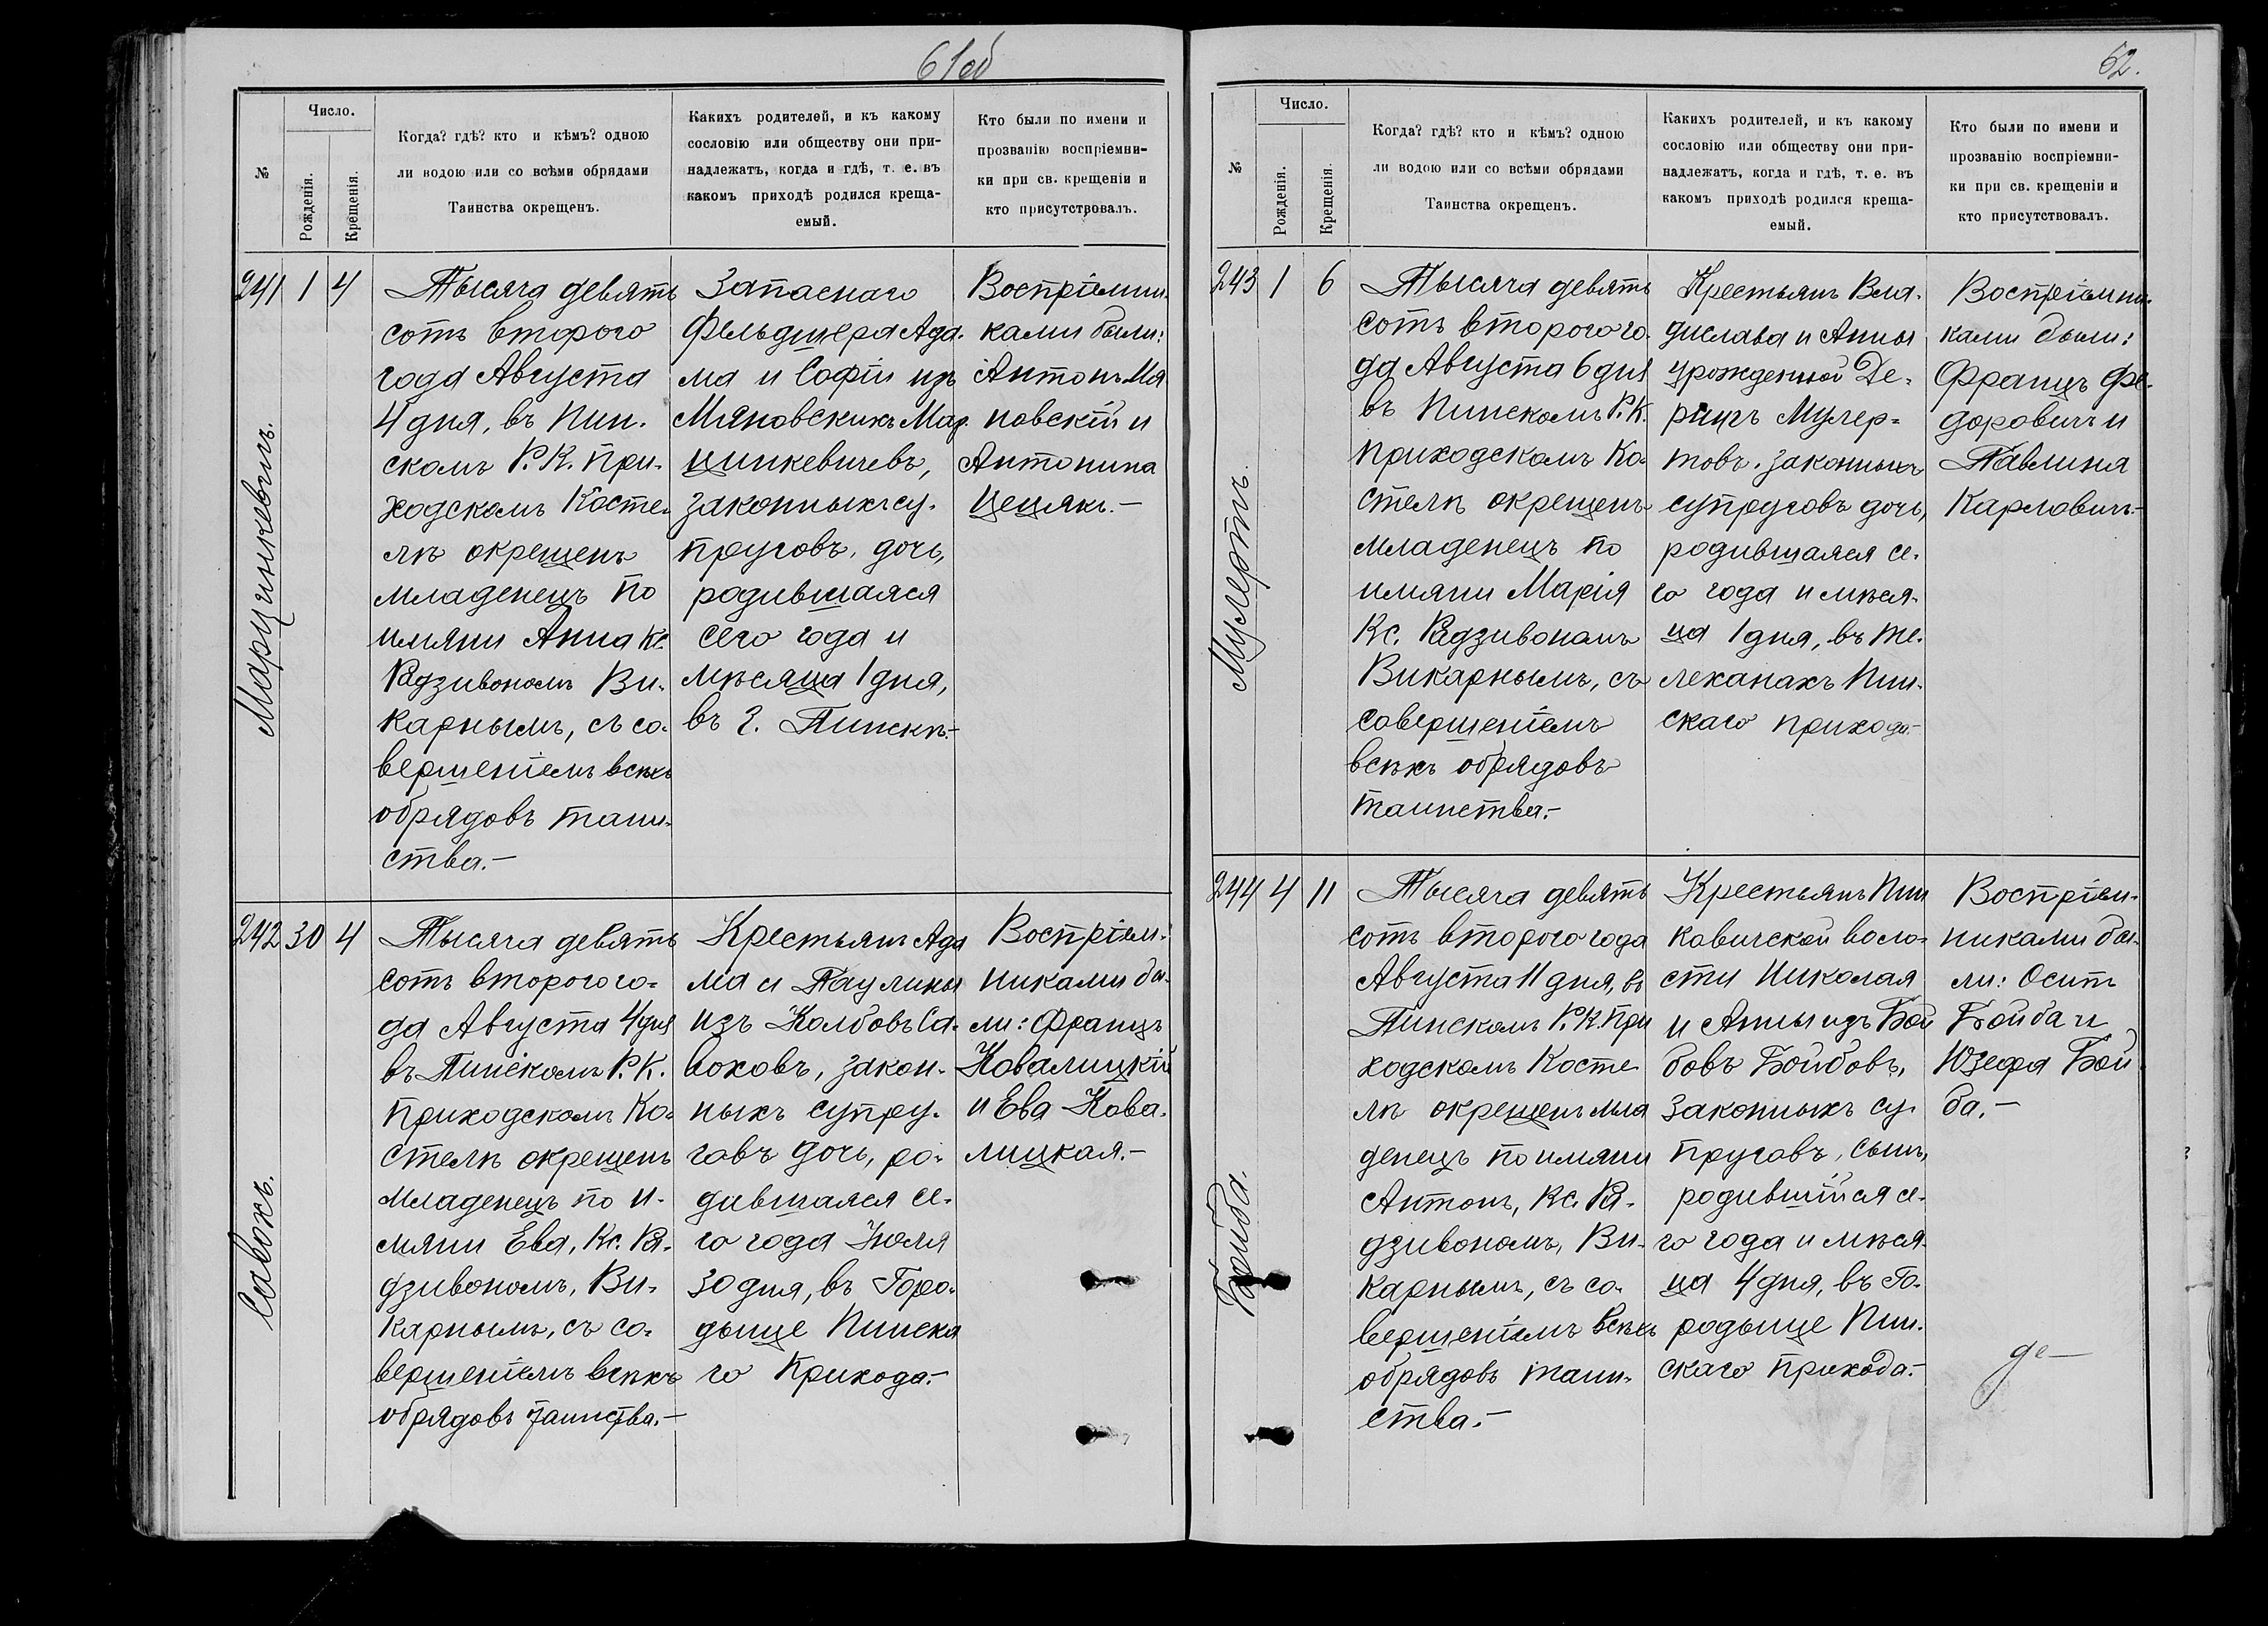 61об
№
Число.
Рожденія.
Крещенія.
Когда? гдѣ? кто и кѣмъ? одною
ли водою или со всѣми обрядами
Таинства окрещенъ.
Какихъ родителей, и къ какому
сословію или обществу они при-
надлежатъ, когда и гдѣ, т. е. въ
какомъ приходѣ родился креща-
емый.
Кто были по имени и
прозванію воспріемни-
ки при св. крещеніи и
кто присутствовалъ.
241 1 4
Марцинкевичъ.
Тысяча девять
сотъ второго
года Августа
4 дня, въ Пин.
скомъ Р. К. При-
ходскомъ Косте-
лѣ окрещенъ
младенецъ по
имяни Анна Кс.
Радзивономъ Ви-
карнымъ, съ со-
вершеніемъ всѣхъ
обрядовъ таин-
ства.-
Запаснаго
Фельдшера Ада-
ма и Софіи изъ
Мяновскихъ Мар-
цинкевичевъ,
законныхъ су-
пруговъ, дочь,
родившаяся
сего года и
мѣсяца 1 дня,
въ г. Пинскѣ.-
Воспріемни-
ками были:
Антонъ Мя
новскій и
Антонина
Цецякъ.-
242 30 4
Савохъ.
Тысяча девять
сотъ второго го-
да Августа 4 дня
въ Пинскомъ Р. К.
Приходскомъ Ко-
стелѣ окрещенъ
младенецъ по и-
мяни Ева, Кс. Ра-
дзивономъ, Ви-
карнымъ, съ со-
вершеніемъ всѣхъ
обрядовъ таинства.-
Крестьянъ Ада
ма и Паулины
изъ Колбовъ Са-
воховъ, закон-
ныхъ супру-
говъ дочь, ро-
дившаяся се-
го года Іюля
30 дня, въ Горо-
дыще Пинска
го Прихода.-
Воспріем-
никами бы-
ли: Францъ
Ковалицкій
и Ева Кова-
лицкая.-
62.
№
Число.
Рожденія.
Крещенія.
Когда? гдѣ? кто и кѣмъ? одною
ли водою или со всѣми обрядами
Таинства окрещенъ.
Какихъ родителей, и къ какому
сословію или обществу они при-
надлежатъ, когда и гдѣ, т. е. въ
какомъ приходѣ родился креща-
емый.
Кто были по имени и
прозванію воспріемни-
ки при св. крещеніи и
кто присутствовалъ.
243 1 6
Мулертъ.
Тысяча девять
сотъ второго го-
да Августа 6 дня
въ Пинскомъ Р. К.
Приходскомъ Ко-
стелѣ окрещенъ
младенецъ по
имяни Марія
Кс. Радзивономъ
Викарнымъ, съ
совершеніемъ
всѣхъ обрядовъ
таинства.-
Крестьянъ Вла-
дислава и Анны
урожденной Де-
рингъ Мулер-
товъ. законныхъ
супруговъ дочь,
родившаяся се-
го года и мѣся-
ца 1 дня, въ Те-
леханахъ Пин-
скаго прихода.-
Воспріемни-
ками были:
Францъ Фе-
доровичъ и
Павлина
Карловичъ.-
244 4 11
Бойба.
Тысяча девять
сотъ второго года
Августа 11 дня, въ
Пинскомъ Р. К. При
ходскомъ Косте
лѣ окрещенъ мла
денецъ по имяни
Антонъ, Кс. Ра-
дзивономъ, Ви-
карнымъ, съ со-
вершеніемъ всѣхъ
обрядовъ таин-
ства.-
Крестьянъ Пин
ковичской воло-
сти Николая
и Анны изъ Бой
бовъ Бойбовъ,
законныхъ су-
пруговъ, сынъ,
родившійся се-
го года и мѣся-
ца 4 дня, въ Го-
родыще Пин-
скаго прихода.-
Воспріем-
никами бы-
ли: Осипъ
Бойба и
Юзефа Бой
ба.-